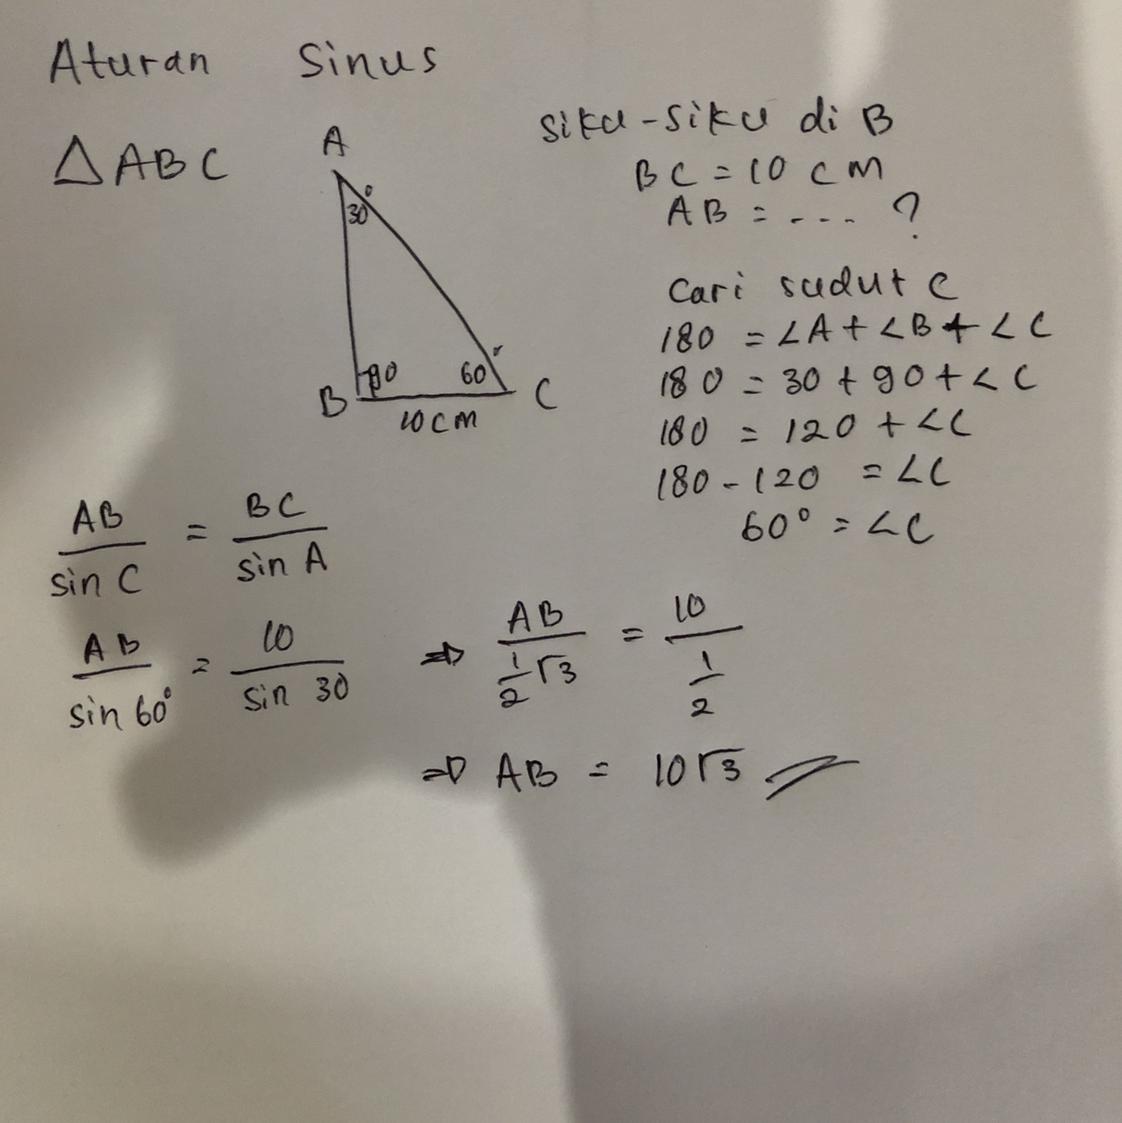 Aturan Sinus
△ABC
A
30°
B
90
60°
C
10 cm
Siku-siku di B
BC = 10 cm
AB = .... ?
Cari sudut C
180 = ∠A + ∠B + ∠C
180 = 30 + 90 + ∠C
180 = 120 + ∠C
180 - 120 = ∠C
60° = ∠C
AB/sin C = BC/sin A
AB/sin 60° = 10/sin 30 ⇒ AB/½√3 = 10/½
⇒ AB = 10√3